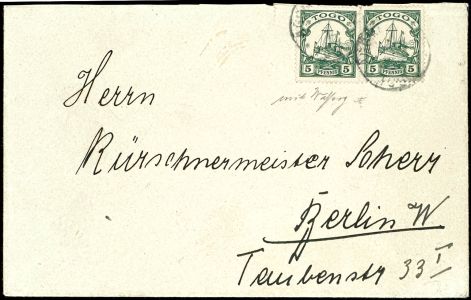 TOGO TOGO
5 PFENNIG 5 5 PFENNIG 5
mit Wasserz.
Herrn
Kürschnermeister Scherr
Berlin W
Taubenstr 33 I